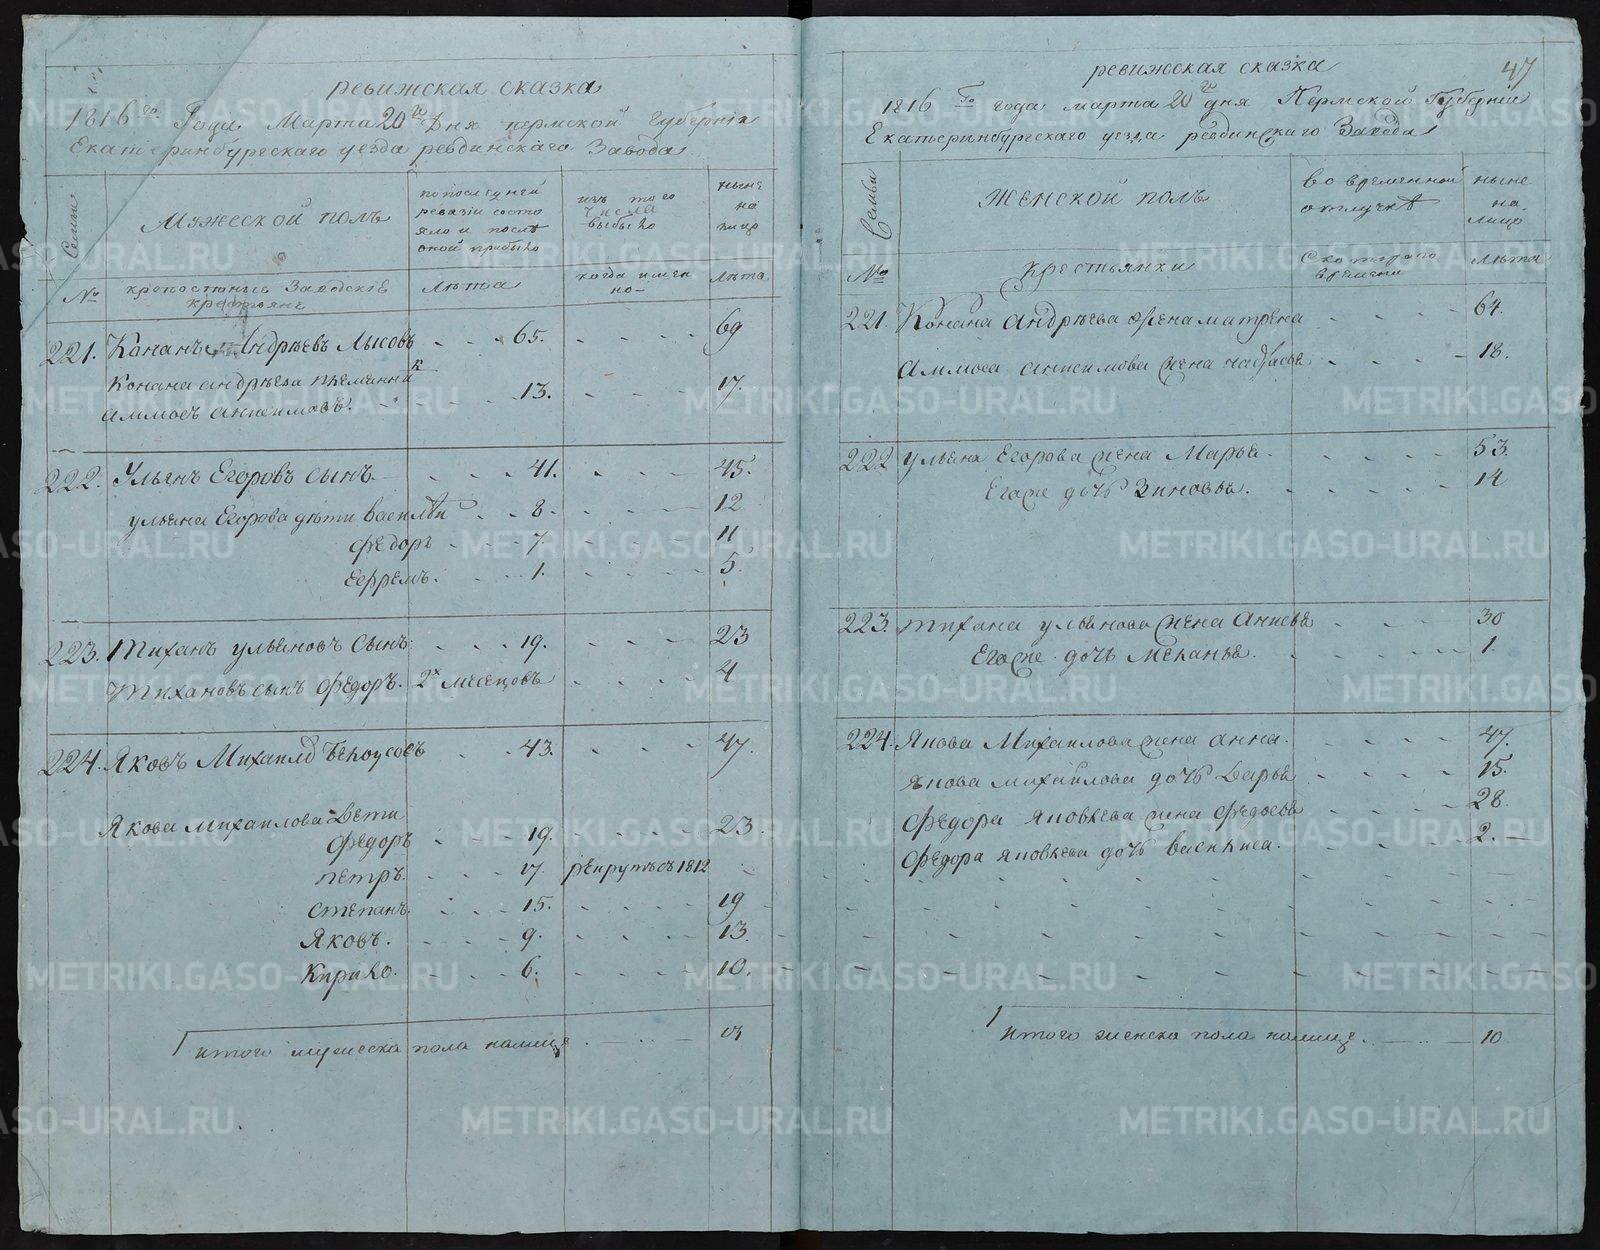 47
ревижская сказка
1816го Года Марта 20го Дня пермской Губерніи
Екатеринбургскаго уезда ревдинскаго Завода
Семьи
Мужеской полъ
по последней
ревизіи состо
яло и послѣ
оной прибыло
изъ того
числа
выбыло
ныне
на
лицо
№
крепостные Заводскіе
крестьяне
лѣта
когда имен
но
лѣта
221. Конанъ Андрѣевъ Лысовъ 65. 69
Конана андрѣева племянник
аммосъ анисимовъ. 13. 17.
222. Ульянъ Егоровъ сынъ 41. 45.
ульяна Егорова дѣти василѣй 8. 12
федоръ 7. 11
Ефремъ. 1. 5.
223. тиханъ ульяновъ сынъ 19. 23
тихановъ сынъ федоръ. 2х месецовъ 4
224. Яковъ Михаилъ Белоусовъ 43. 47.
Якова михаилова Дети
федоръ 19. 23.
петръ. 17. рекрутъ съ 1812
степанъ. 15. 19
Яковъ. 9. 13.
Кирило. 6. 10.
итого мужеска пола налице 17
ревижская сказка
1816го года марта 20го дня Пермской Губерніи
Екатеринбургскаго уезда ревдинскаго Завода
Семьи
Женской полъ
во временной
отлучкѣ
ныне
на
лицо
№
Крестьянки
Скотораго
времени
лѣта
221. Конана андрѣева жена матрена 64.
Аммоса анисимова жена 18.
222 ульяна Егорова жена Марья. 53.
Егоже дочь Зиновья. 14
223. тихана ульянова жена Анисья 30
Егоже дочь меланья. 1.
224. Якова Михаилова жена анна. 47.
Якова михаилова дочь дарья 15.
федора яковлева жена федосья 28.
федора яковлева дочь василиса. 2.
итого женска пола налице. 10
METRIKI.GASO-URAL.RU